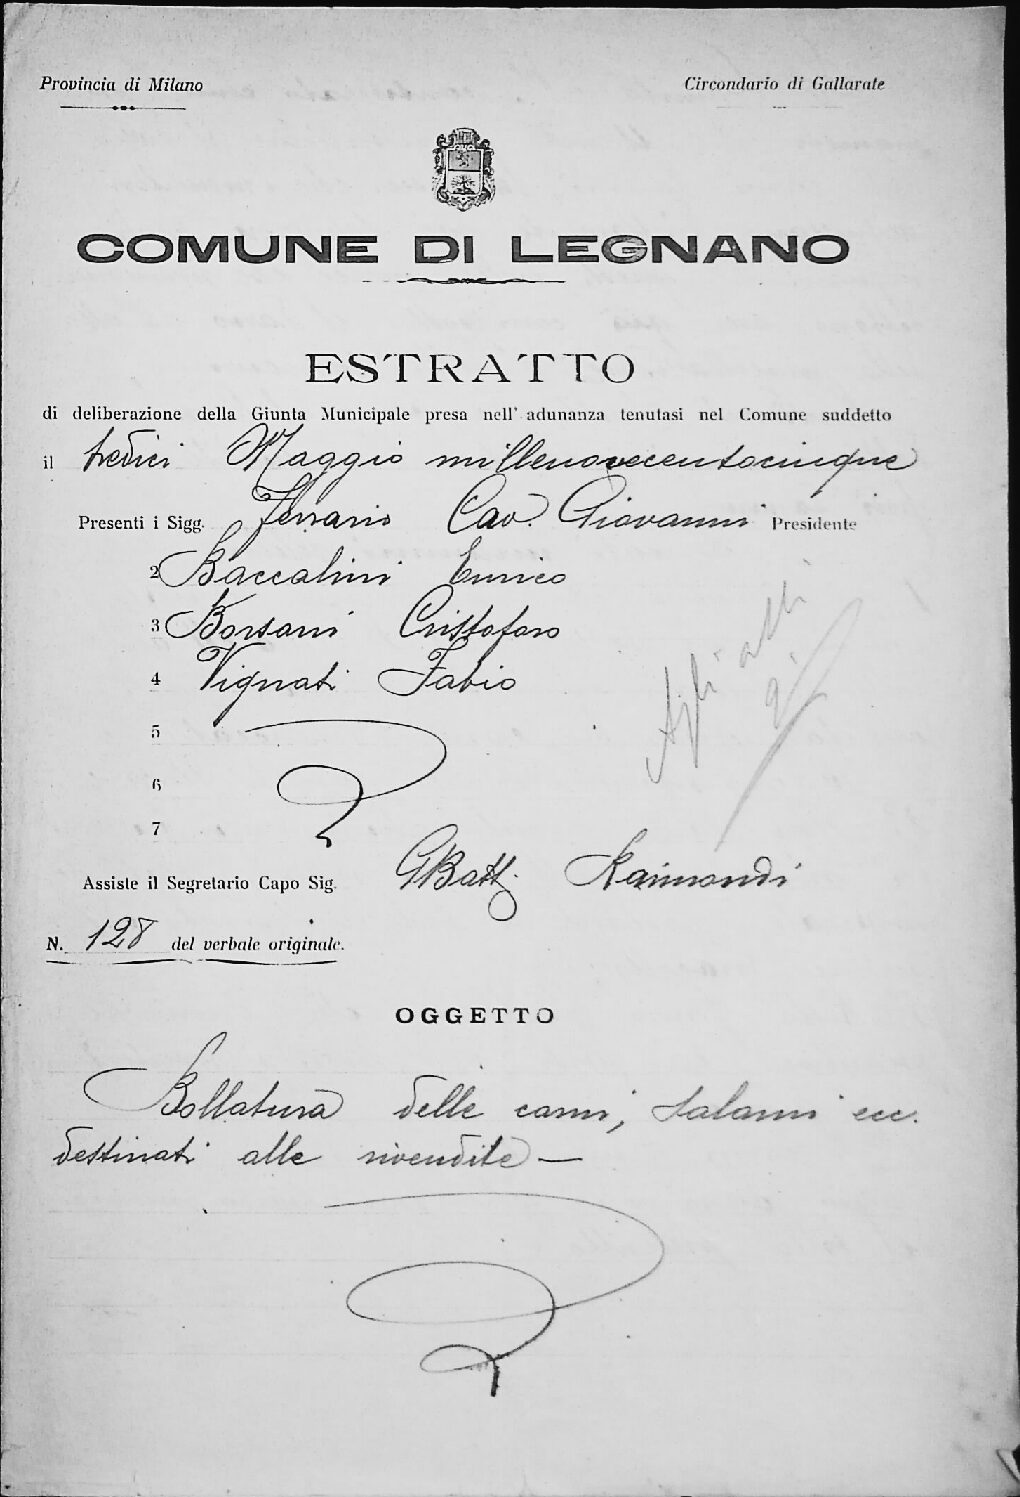 Provincia di Milano
Circondario di Gallarate
COMUNE DI LEGNANO
ESTRATTO
di deliberazione della Giunta Municipale presa nell' adunanza tenutasi nel Comune suddetto
il tredici Maggio millenovecentocinque
Presenti i Sigg. Ferrario Cav. Giovanni Presidente
2 Baccalini Enrico
3 Borsani Cristoforo
4 Vignati Fabio
5
6
7
Agli atti
Assiste il Segretario Capo Sig. GBatt. Raimondi
N. 128 del verbale originale.
OGGETTO
Bollatura delle carni, salami ecc.
destinati alle rivendite —